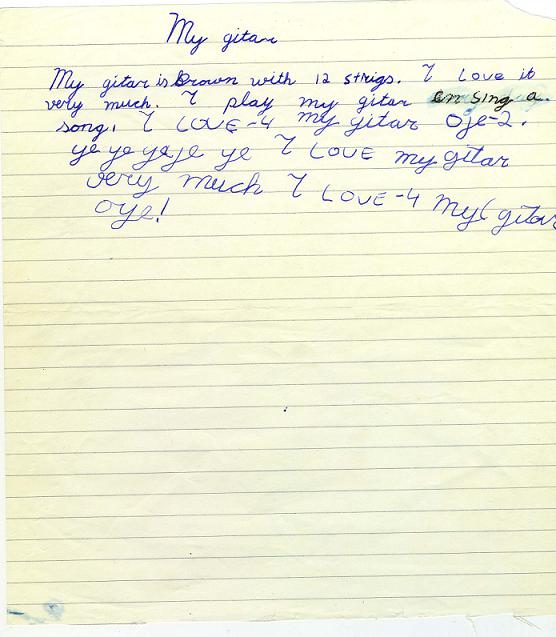 My gitar
My gitar is Brown with 12 strigs. I love it
very much. I play my gitar en sing a
song. I LOVE-4 my gitar oje-2.
ye ye yeje ye I LOVE my gitar
very much I LOVE-4 My gitar
oye!